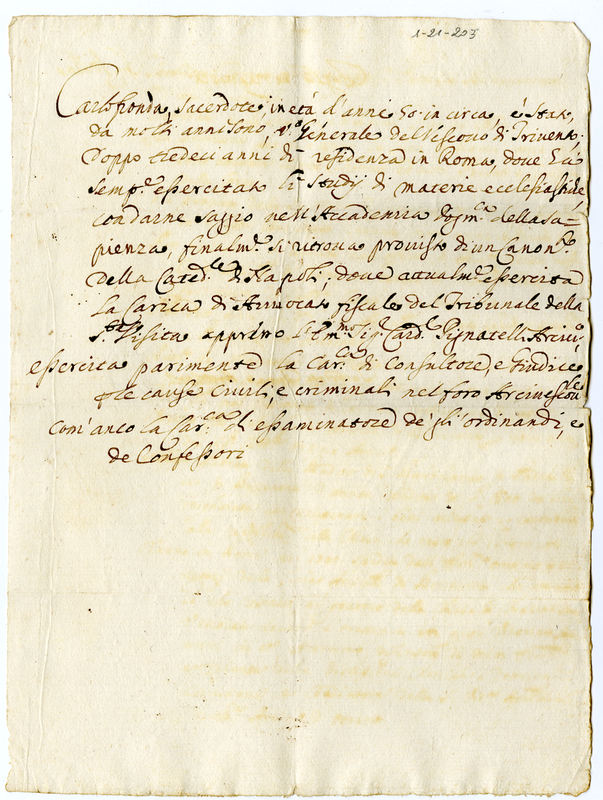 1-21-203
Carlo fionda, sacerdote, in età d'anni 50. in circa, è stato,
da molti anni sono, V.º Generale del Vescovo di Trivento,
doppo tredeci anni di residenza in Roma, dove hà
semp.e essercitato li studij di materie ecclesiastiche
con darne saggio nell'Accademia della Sa-
pienza, finalm.e si ritrova provisto di un Canon.to
della Cated.le di Napoli, dove attualm.e essercita
la Carica di Avvocato fiscale del Tribunale della
S.ta Visita appresso l'Em.mo Sig.r Card.le Pignatelli Arciv.o
essercita parimente la Car.ca di Consultore, e Giudice
p le cause Civili, e criminali nel foro Arcivescou.le
com'anco la Car.ca di essaminatore de gli ordinandi, e
de Confessori